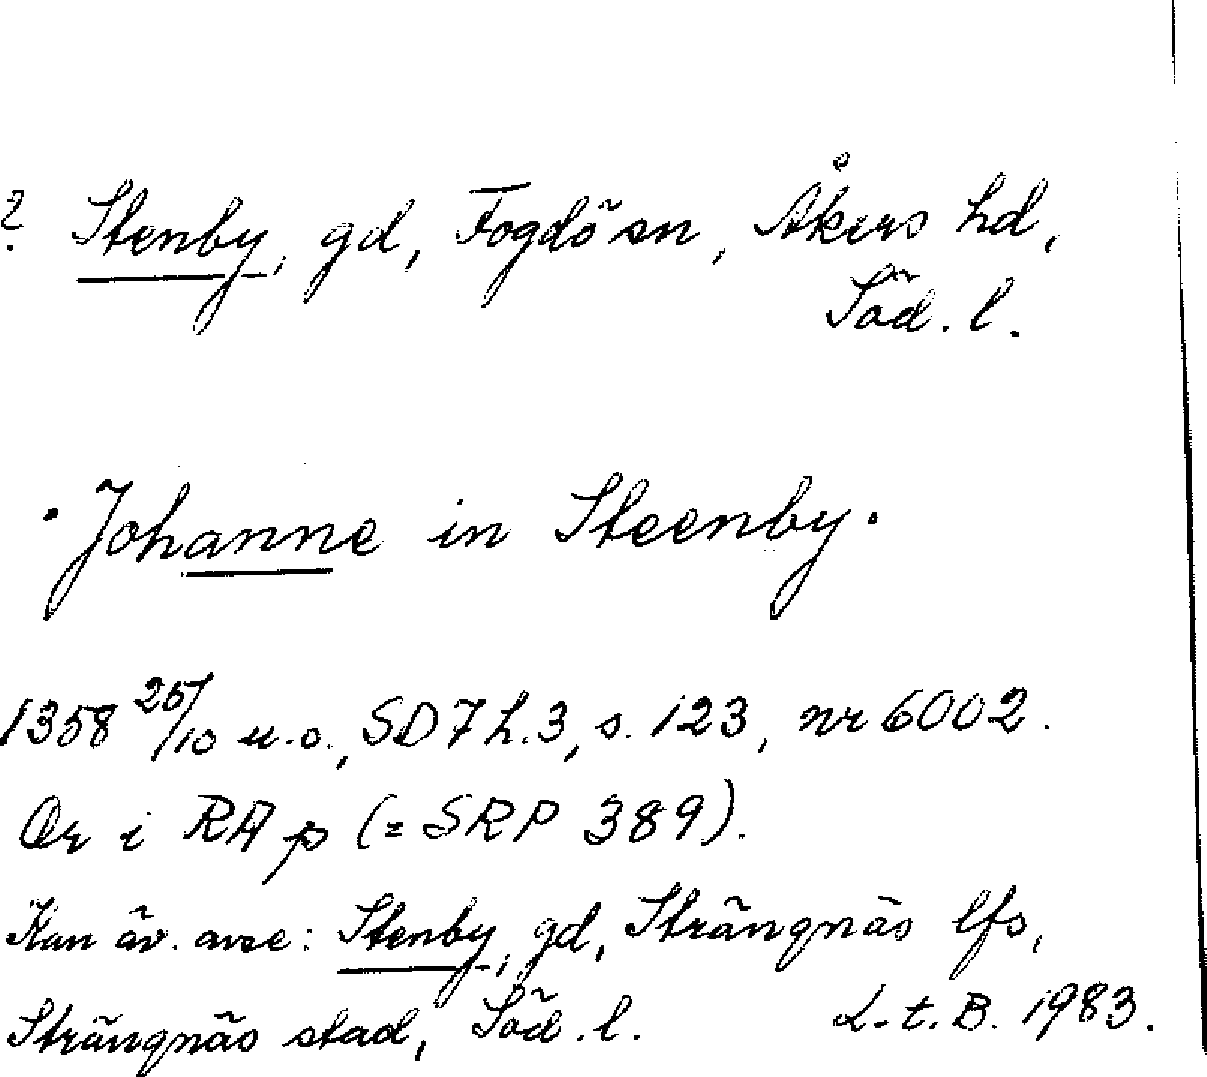 ? Stenby, gd, Fogdö sn, Åkers hd,
Söd. l.
· Johanne in Steenby.
1358 25/10 u.o., SD 7 h. 3, s. 123, nr 6002.
Or i RA p (= SRP 389).
Kan äv. avse: Stenby, gd, Strängnäs lfs,
Strängnäs stad, Söd. l. L. t. B. 1983.